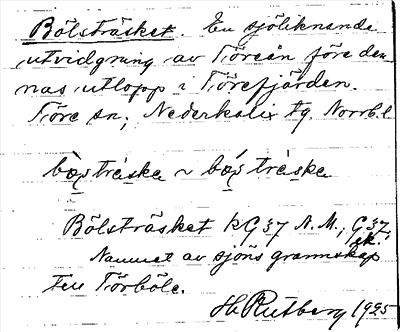 Bölsträsket. En sjöliknande
utvidgning av Töreån före den-
nas utlopp i Törefjärden.
Töre sn, Nederkalix tg. Norrb. l
bøstrāska ~ bóstrāska
Bölsträsket kG 37 N.M., G 37,
ek.
Namnet av sjöns grannskap
till Törböle.
H Rutberg 1925